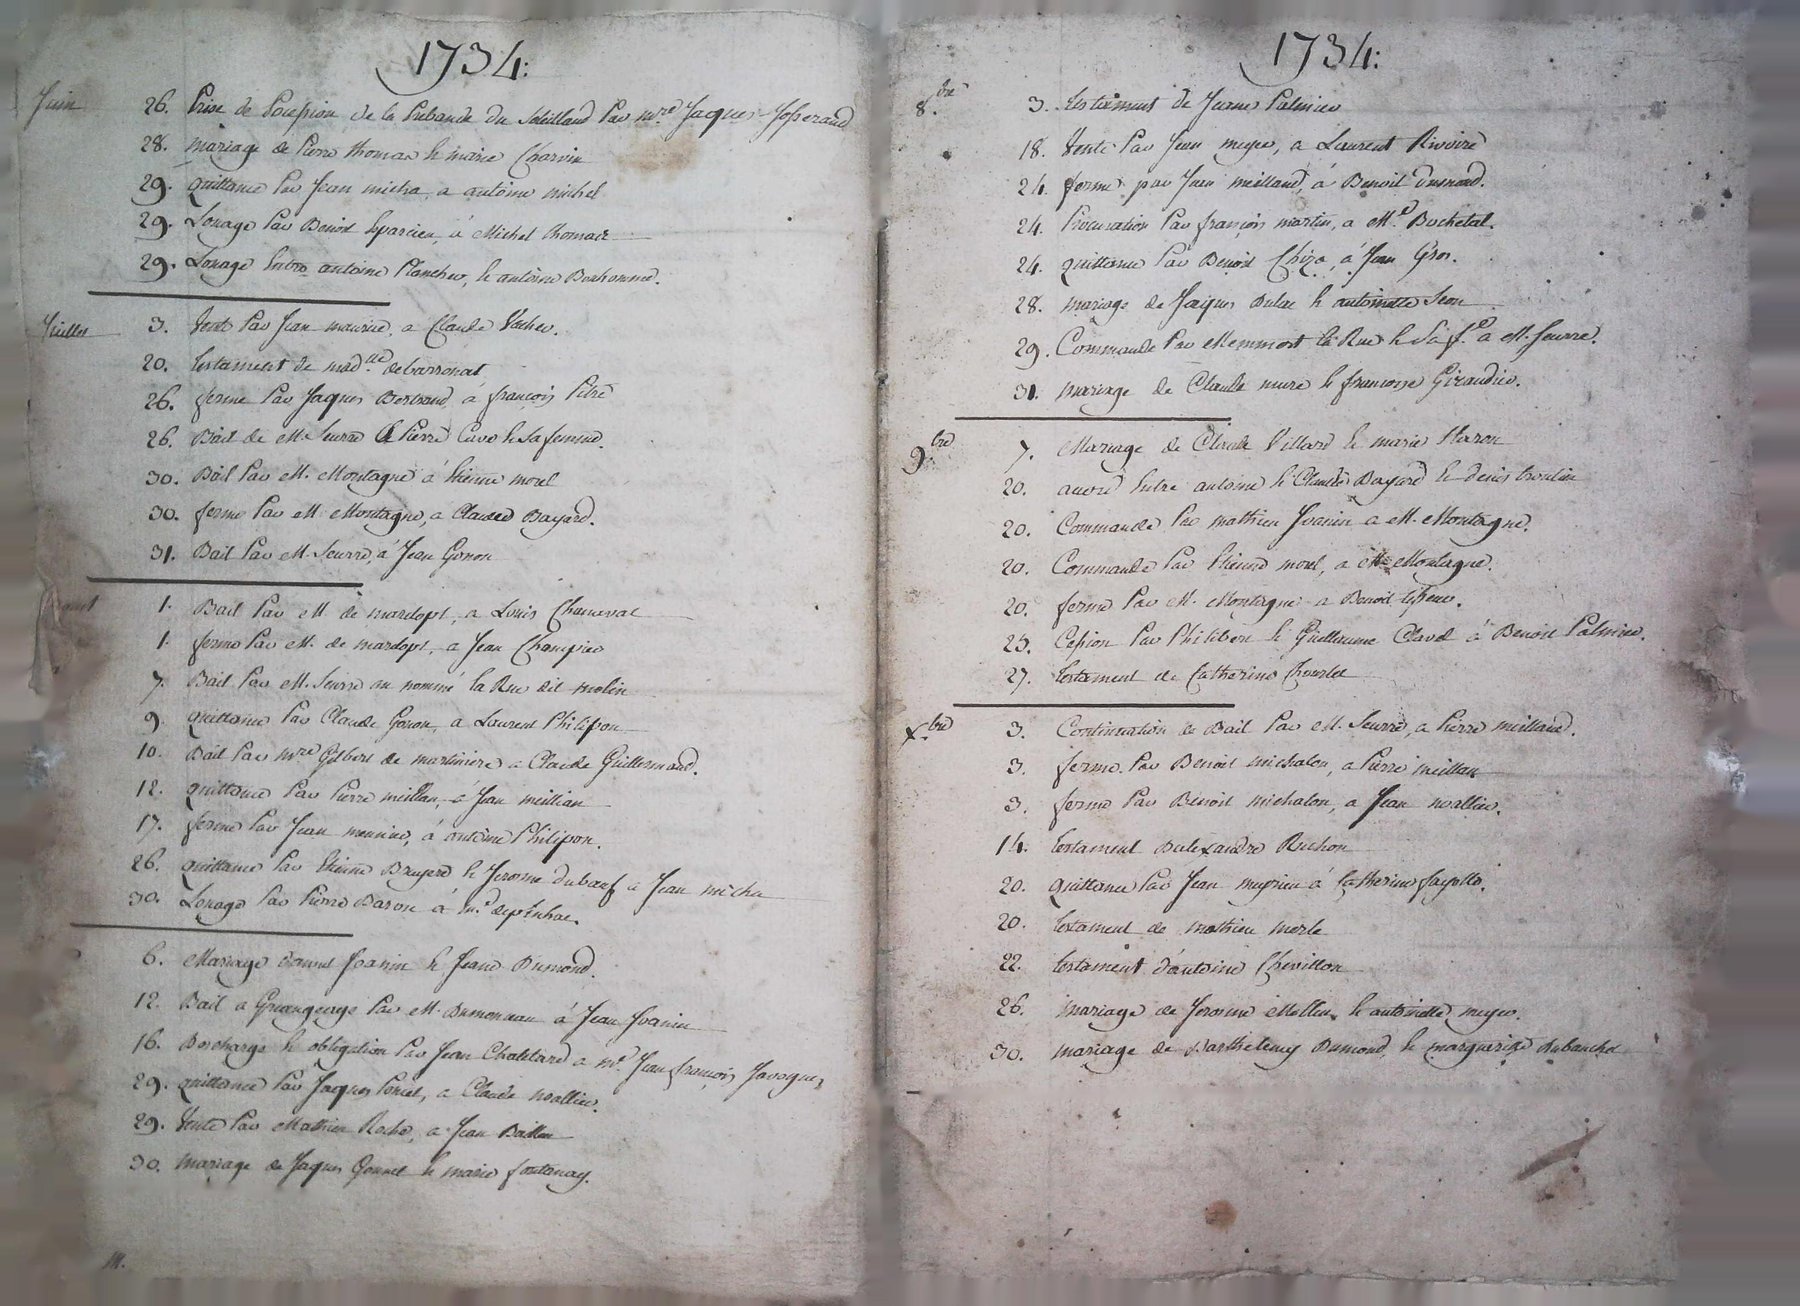 1734:
Juin 26. Prise de Possession de la Prebande du Soleilland Par mre Jaques Josserand
28. mariage de Pierre thomas & marie Charvin
29. quittance Par Jean micha, a antoine michel
29. Louage Par Benoit Eparcieu, a Michel thomas
29. Louage Entre antoine Plancher, & antoine Bonhomme.
Juillet 3. Vente Par Jean maurice, a Claude Vacher.
20. testament de madlle debarronat
26. ferme Par Jaques Bertrand, a françois Pitre
26. Bail de M. Seurre a Pierre Cave & sa femme.
30. Bail Par M. Montagne a Etienne morel
30. ferme Par M. Montagne, a Claude Bayard.
31. Bail Par M. Seurre, a Jean Gonon
1. Bail Par M de mardopt, a Louis Charneval
1. ferme Par M. de mardopt, a Jean Champier
7. Bail Par M. Seurre au nommé la Rue dit molin
9. quittance Par Claude Gonon, a Laurent Philipon
10. Bail Par mre Gilbert de martiniere a Claude Guillermand.
12. quittance Par Pierre meillan, a Jean meillian
17. ferme Par Jean meunier, a antoine Philipon.
26. quittance Par Etienne Bruyere & Jerome duboeuf a Jean micha
30. Louage Par Pierre Baron a
6. Mariage Joanin & Jeane Dumond.
12. Bail a Grangeage Par M. Dumoncau a Jean Joanin
16. Descharge & obligation Par Jean Chatelard a mr. Jean françois Javogues
29. quittance Par Jaques Poncet, a Claude noallier.
29. Vente Par Mathieu Roche, a Jean Ballon
30. mariage de Jaques Gonnet & marie fontenay.
1734:
8.bre 3. testament de Jeane Palmier
18. Vente Par Jean meyer, a Laurent Rivoire
24. ferme par Jean meilland, a Benoit Dumond.
24. Procuration Par françois martin, a Me. Bochetal.
24. quittance Par Benoit Chize, a Jean Gros.
28. mariage de Jaques Dulac & antoinette Seon
29. Commande Par Memmort la Rue & Sa fe. a M. Seurre.
31. mariage de Claude mure & francoise Giraudier.
9.bre 7. Mariage de Claude Villard & marie Naron
20. acord Entre antoine & Claude Bayard & denis troulin
20. Commande Par mathieu Joanin a M. Montagne.
20. Commande Par Etienne morel, a M. Montagne.
20. ferme Par M. Montagne a Benoit
23. Cession Par Philibert & Guillaume Clavel a Benoit Palmier.
27. testament de Catherine Chourlet
X.bre 3. Continuation de Bail Par M. Seurre, a Pierre meilland.
3. ferme Par Benoit michalon, a Pierre meillan
3. ferme Par Benoit michalon, a Jean noallier.
14. testament Dalexandre Ruchon
20. quittance Par Jean meyrieu a Catherine fayolle.
20. testament de mathieu merle
22. testament d'antoine Chevillon
26. mariage de Jerosme Mollin & antoinette meyer.
30. mariage de Barthelemy Dumond, & marguerite dubanchet